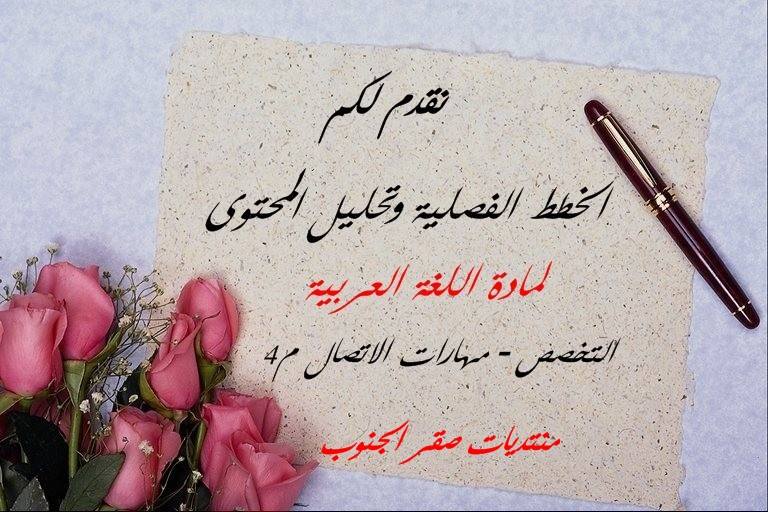 نقدم لكم
الخطط الفصلية وتحليل المحتوى
لمادة اللغة العربية
التخصص - مهارات الاتصال م4
منتديات صقر الجنوب